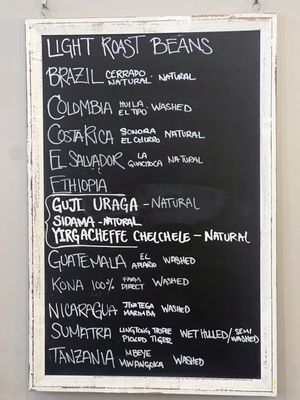 LIGHT ROAST BEANS
BRAZIL CERRADO NATURAL - NATURAL
COLOMBIA HUILA EL TIPO WASHED
COSTA RICA SONORA EL CHURRO NATURAL
EL SALVADOR LA NATURAL
ETHIOPIA
GUJI URAGA - NATURAL
SIDAMA - NATURAL
YIRGACHEFFE CHELCHELE - NATURAL
GUATEMALA EL APIARIO WASHED
KONA 100% FARM DIRECT WASHED
NICARAGUA JINOTEGA MARIMBA WASHED
SUMATRA LINGTONG TRIPLE PICKED TIGER WET HULLED/SEMI WASHED
TANZANIA MBEYE WASHED